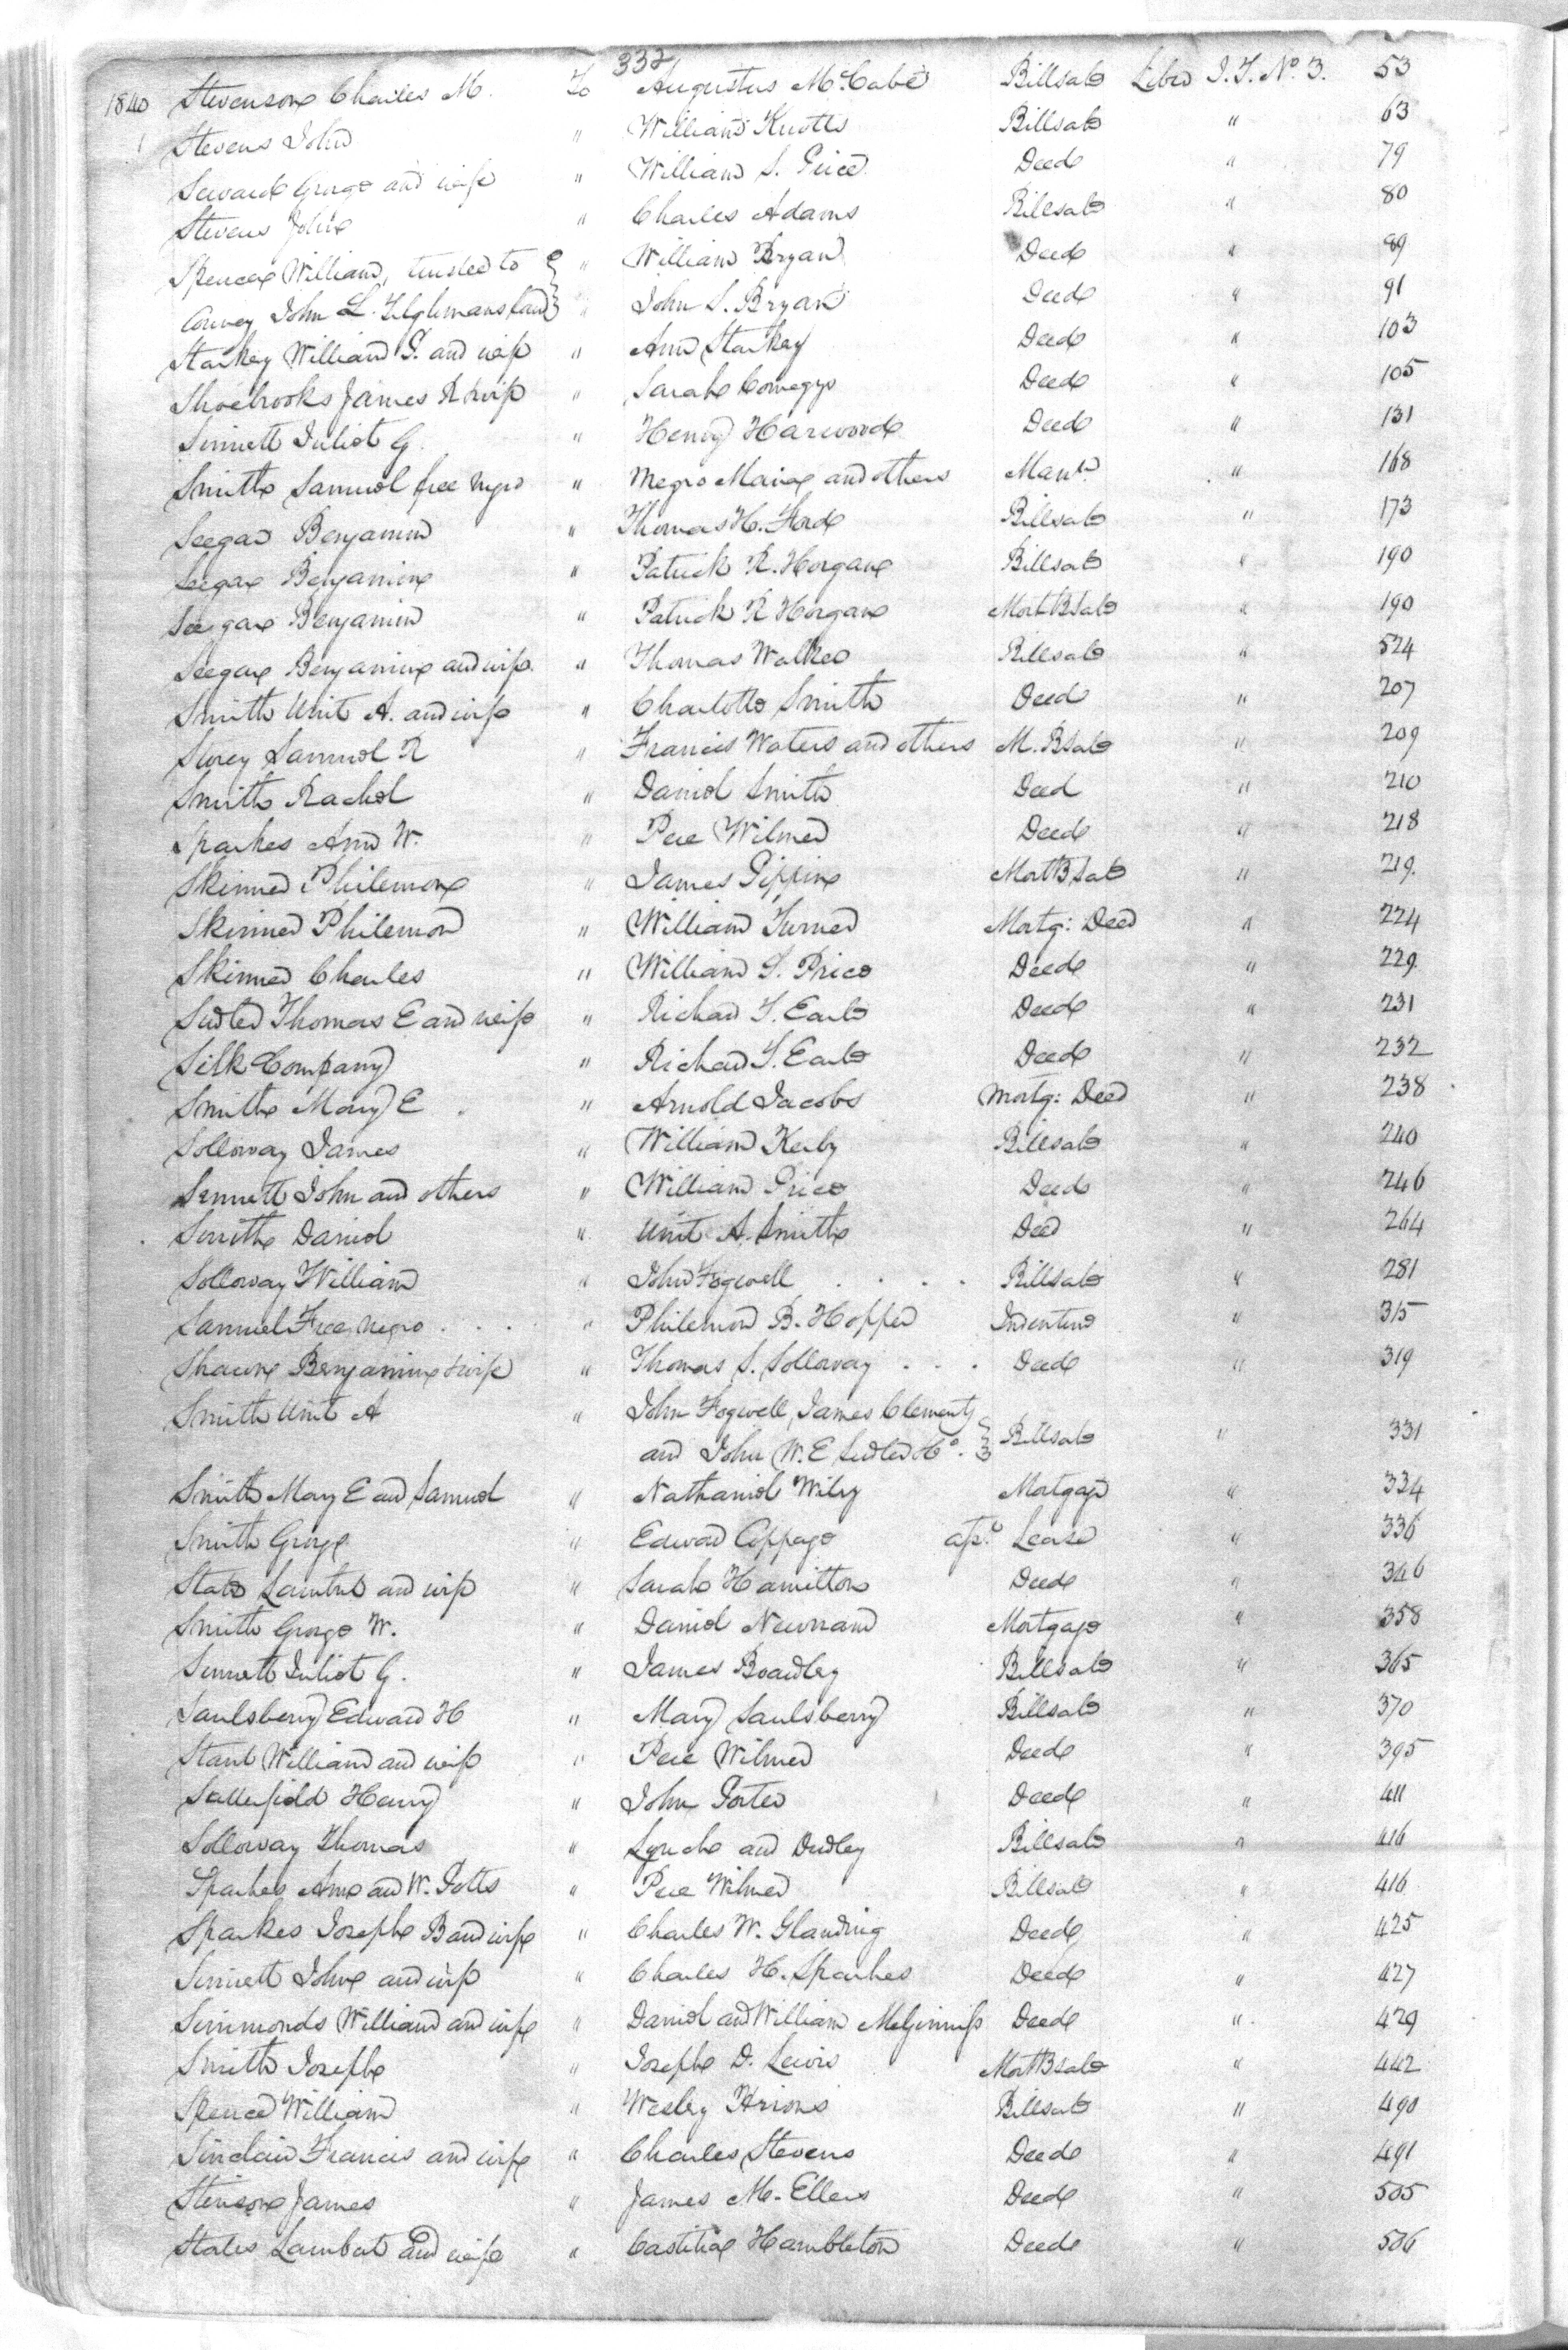 332
1840 Stevenson Charles M. To Augustus McCabe Billsale Libro J.T. No. 3. 53
Stevens John " William Knotts Billsale " 63
Seward George and wife " William S. Price Deed " 79
Stevens John " Charles Adams Billsale " 80
Spencer William, trustee to " William Bryan Deed " 89
Convey John L. Tilghmans land " John S. Bryan Deed " 91
Starkey William S. and wife " Ann Starkey Deed " 103
Shoebrooks James R & wife " Sarah Comegys Deed " 105
Sinnett Juliet G. " Henry Harwood Deed " 131
Smith Samuel free negro " Negro Maria and others Mann. " 168
Seegar Benjamin " Thomas H. Ford Billsale " 173
Seegar Benjamin " Patrick R. Horgan Billsale " 190
Seegar Benjamin " Patrick R Horgan Mort Bsale " 190
Seegar Benjamin and wife " Thomas Walker Billsale " 524
Smith Unit A. and wife " Charlotte Smith Deed " 207
Storey Samuel R " Francis Waters and others M. Bsale " 209
Smith Rachel " Daniel Smith Deed " 210
Sparkes Ann W. " Pere Wilmer Deed " 218
Skinner Philemon " James Pippin Mort Bsale " 219.
Skinner Philemon " William Turner Mortg: Deed " 224
Skinner Charles " William S. Price Deed " 229
Sudler Thomas E and wife " Richard T. Earle Deed " 231
Silk Company " Richard T. Earle Deed " 232
Smith Mary E " Arnold Jacobs Mortg: Deed " 238
Solloway James " William Kerby Billsale " 240
Sennett John and others " William Price Deed " 246
Smith Daniel " Unit A. Smith Deed " 264
Solloway William " John Fogwell . . . . Billsale " 281
Samuel Free, Negro . . . " Philemon B. Hopper Indenture " 315
Shawn Benjamin & wife " Thomas S. Solloway . . . Deed " 319
Smith Unit A " John Fogwell, James Clements
and John W. E Sudler &Co. Billsale " 331
Smith Mary E and Samuel " Nathaniel Wiley Mortgage " 334
Smith George " Edward Coppage Lease " 336
State Lambert and wife " Sarah Hamilton Deed " 346
Smith George W. " Daniel Newnam Mortgage " 358
Sinnett Juliet G. " James Boardley Billsale " 365
Saulsberry Edward H " Mary Saulsberry Billsale " 370
Stant William and wife " Pere Wilmer Deed " 395
Satterfield Henry " John Porter Deed " 411
Solloway Thomas " Lynch and Dudley Billsale " 416
Sparkes Ann and W. Potts " Pere Wilmer Billsale " 416
Sparkes Joseph B and wife " Charles W. Glanding Deed " 425
Sinnett John and wife " Charles H. Sparkes Deed " 427
Simmonds William and wife " Daniel and William McGinniss Deed " 429
Smith Joseph " Joseph D. Lewis Mort Bsale " 442
Spence William " Wesley Hrions Billsale " 490
Sinclair Francis and wife " Charles Stevens Deed " 491
Stinson James " James M. Ellers Deed " 505
States Lambert and wife " Castitia Hambleton Deed " 506